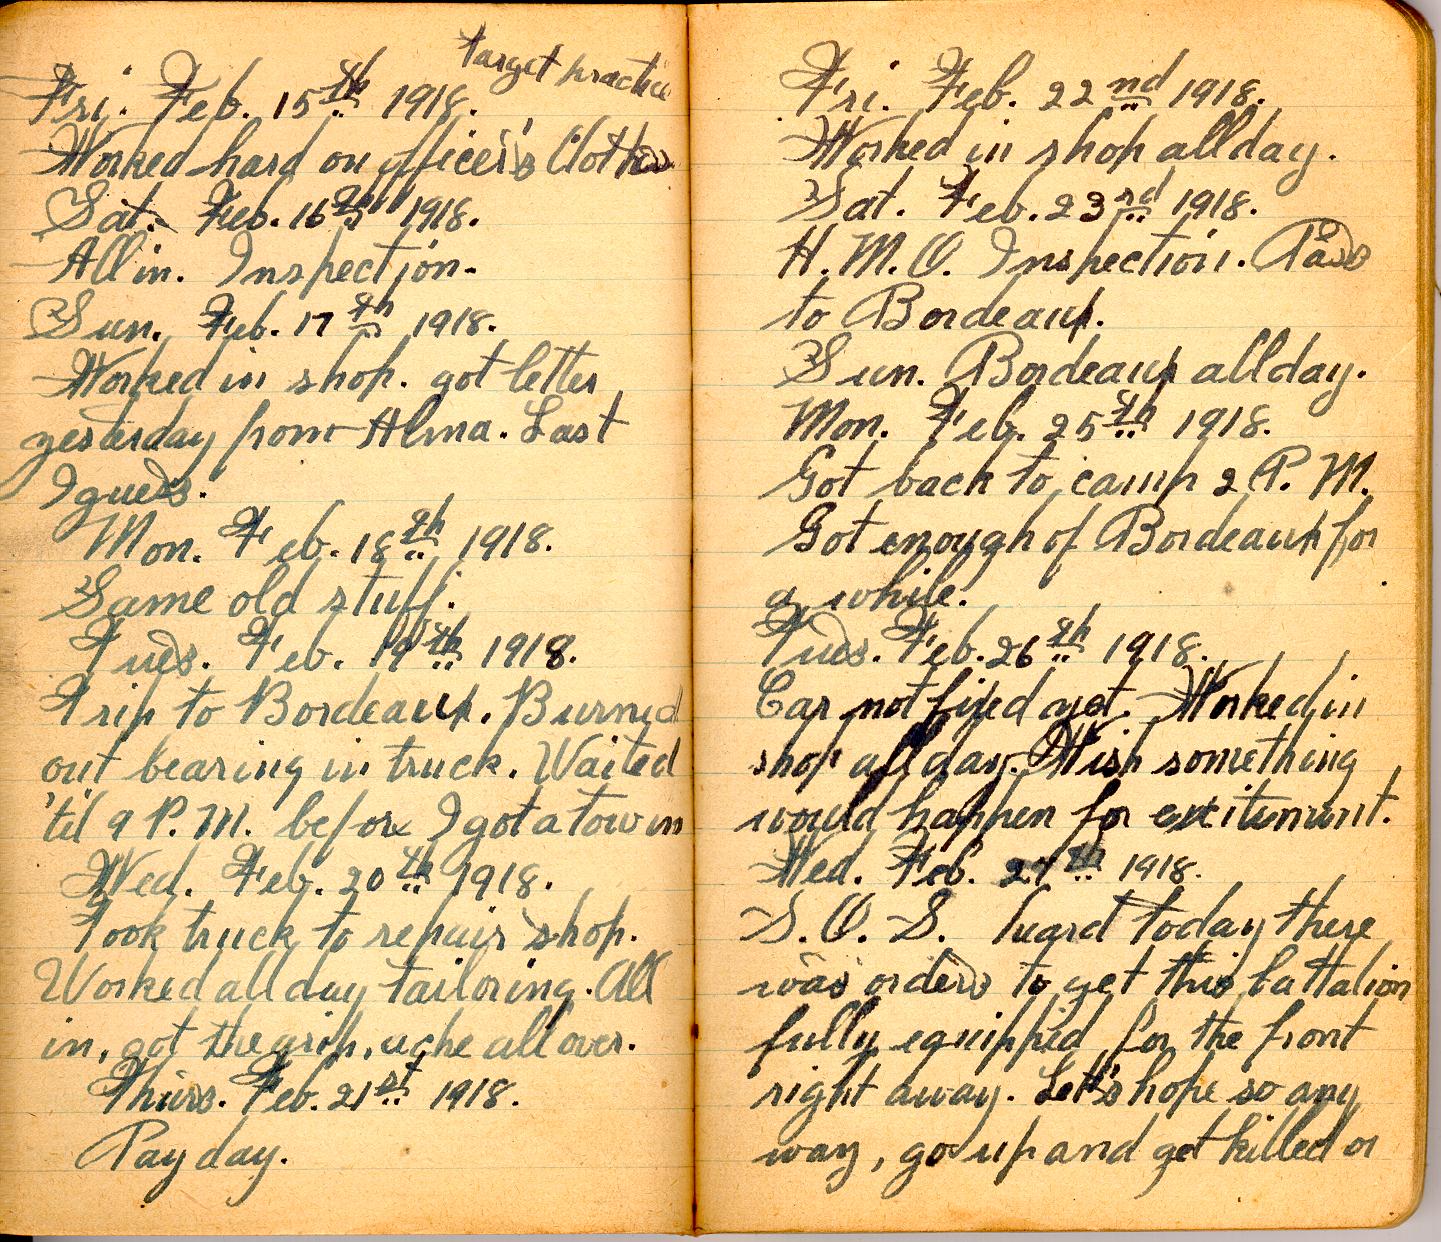 target practice
Fri. Feb. 15th 1918.
Worked hard on officer's Clothes
Sat. Feb. 16th 1918.
All in. Inspection.
Sun. Feb. 17th 1918.
Worked in shop. got letter
yesterday from Alma. Last
I guess.
Mon. Feb. 18th 1918.
Same old stuff.
Tues. Feb. 19th 1918.
Trip to Bordeaux. Burned
out bearing in truck. Waited
'til 9 P.M. before I got a tow in
Wed. Feb. 20th 1918.
Took truck to repair shop.
Worked all day tailoring. All
in, got the grip, ache all over.
Thurs. Feb. 21st 1918.
Pay day.
Fri. Feb. 22nd 1918.
Worked in shop all day.
Sat. Feb. 23rd 1918.
H. M. O. Inspection. Pass
to Bordeaux.
Sun. Bordeaux all day.
Mon. Feb. 25th 1918.
Got back to camp 2 P. M.
Got enough of Bordeaux for
a while.
Tues. Feb. 26th 1918.
Car not fixed yet. Worked in
shop all day. Wish something
would happen for excitement.
Wed. Feb. 27th 1918.
S. O. S. heard today there
was orders to get this battalion
fully equipped for the front
right away. Let's hope so any
way, go up and get killed or